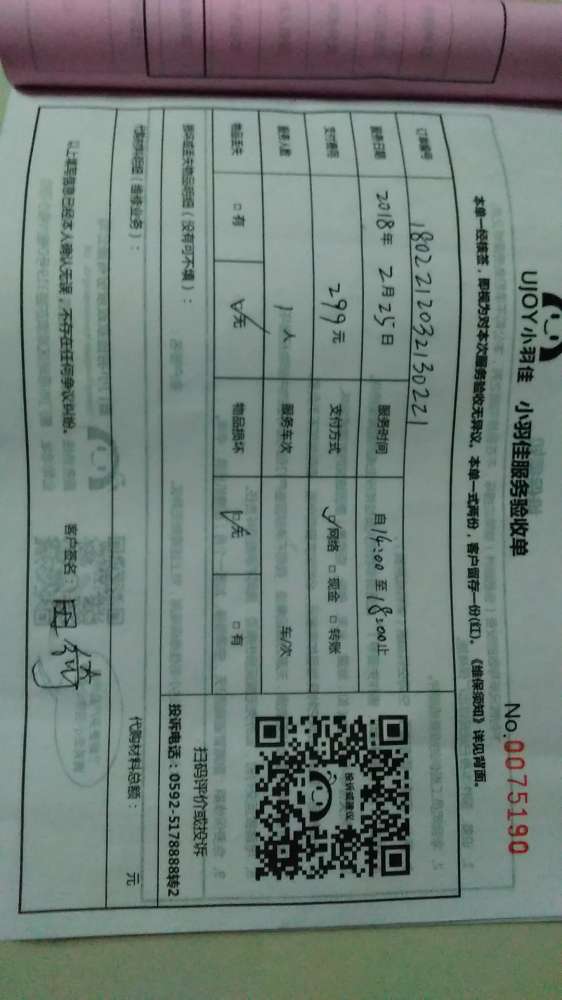 UJOY小羽佳 小羽佳服务验收单 No.0075190
本单一经核签，即视为对本次服务验收无异议。本单一式两份，客户留存一份(红)。《维保须知》详见背面。
订单编号 180221203213022 1
服务日期 2018年2月25日 服务时间 自14:00至18:00止
支付费用 299元 支付方式 ☑网络 □现金 □转账
服务人数 1人 服务车次 车/次
物品丢失 □有 ☑无 物品损坏 ☑无 □有
损坏或丢失物品明细（没有可不填）：
投诉或建议
扫码评价或投诉
投诉电话：0592-5178888转2
代购材料明细（维修业务）： 代购材料总额： 元
以上填写信息已经本人确认无误，不存在任何争议纠纷。 客户签名：